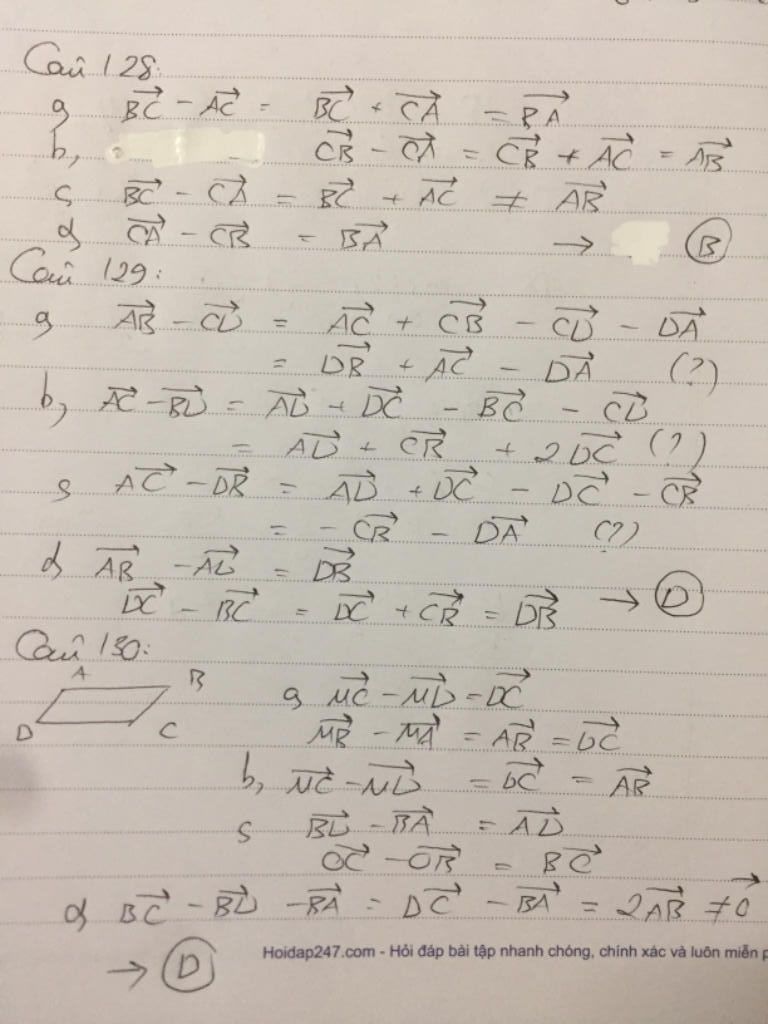 Câu 128:
a, $\overrightarrow{BC} - \overrightarrow{AC} = \overrightarrow{BC} + \overrightarrow{CA} = \overrightarrow{BA}$
b, $\overrightarrow{CB} - \overrightarrow{CA} = \overrightarrow{CB} + \overrightarrow{AC} = \overrightarrow{AB}$
c, $\overrightarrow{BC} - \overrightarrow{CA} = \overrightarrow{BC} + \overrightarrow{AC} \neq \overrightarrow{AB}$
d, $\overrightarrow{CA} - \overrightarrow{CB} = \overrightarrow{BA}$ → B
Câu 129:
a, $\overrightarrow{AB} - \overrightarrow{CD} = \overrightarrow{AC} + \overrightarrow{CB} - \overrightarrow{CD} - \overrightarrow{DA}$
$= \overrightarrow{DB} + \overrightarrow{AC} - \overrightarrow{DA}$ (?)
b, $\overrightarrow{AC} - \overrightarrow{BD} = \overrightarrow{AD} + \overrightarrow{DC} - \overrightarrow{BC} - \overrightarrow{CD}$
$= \overrightarrow{AD} + \overrightarrow{CB} + 2\overrightarrow{DC}$ (?)
c, $\overrightarrow{AC} - \overrightarrow{DB} = \overrightarrow{AD} + \overrightarrow{DC} - \overrightarrow{DC} - \overrightarrow{CB}$
$= -\overrightarrow{CB} - \overrightarrow{DA}$ (?)
d, $\overrightarrow{AB} - \overrightarrow{AD} = \overrightarrow{DB}$
$\overrightarrow{DC} - \overrightarrow{BC} = \overrightarrow{DC} + \overrightarrow{CB} = \overrightarrow{DB}$ → D
Câu 130:
A B
D C
a, $\overrightarrow{MC} - \overrightarrow{MD} = \overrightarrow{DC}$
$\overrightarrow{MB} - \overrightarrow{MA} = \overrightarrow{AB} = \overrightarrow{DC}$
b, $\overrightarrow{MC} - \overrightarrow{MD} = \overrightarrow{DC} = \overrightarrow{AB}$
c, $\overrightarrow{BD} - \overrightarrow{BA} = \overrightarrow{AD}$
$\overrightarrow{OC} - \overrightarrow{OB} = \overrightarrow{BC}$
d, $\overrightarrow{BC} - \overrightarrow{BD} - \overrightarrow{BA} = \overrightarrow{DC} - \overrightarrow{BA} = 2\overrightarrow{AB} \neq \overrightarrow{0}$
→ D
Hoidap247.com - Hỏi đáp bài tập nhanh chóng, chính xác và luôn miễn p